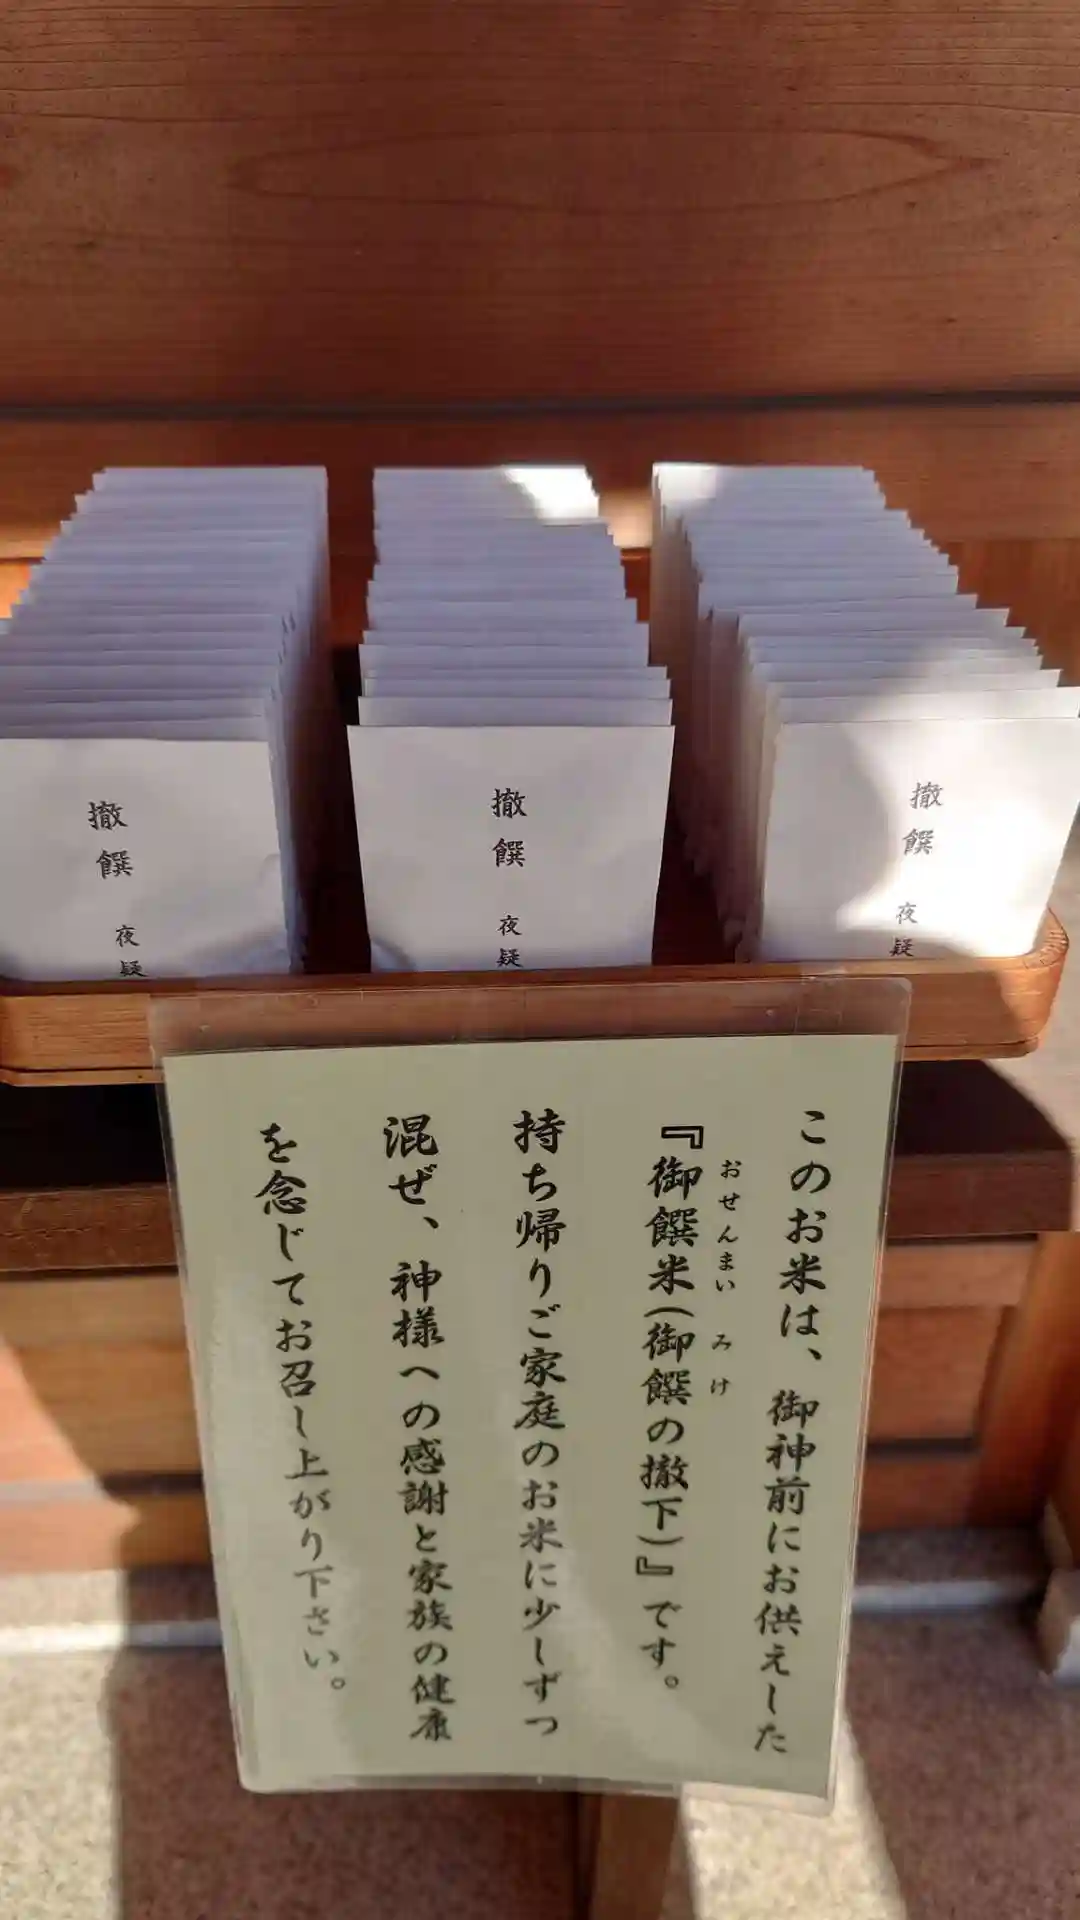 撤饌 夜疑
撤饌 夜疑
撤饌 夜疑
このお米は、御神前にお供えした
『御饌米(御饌の撤下)』です。
おせんまい みけ
持ち帰りご家庭のお米に少しずつ
混ぜ、神様への感謝と家族の健康
を念じてお召し上がり下さい。